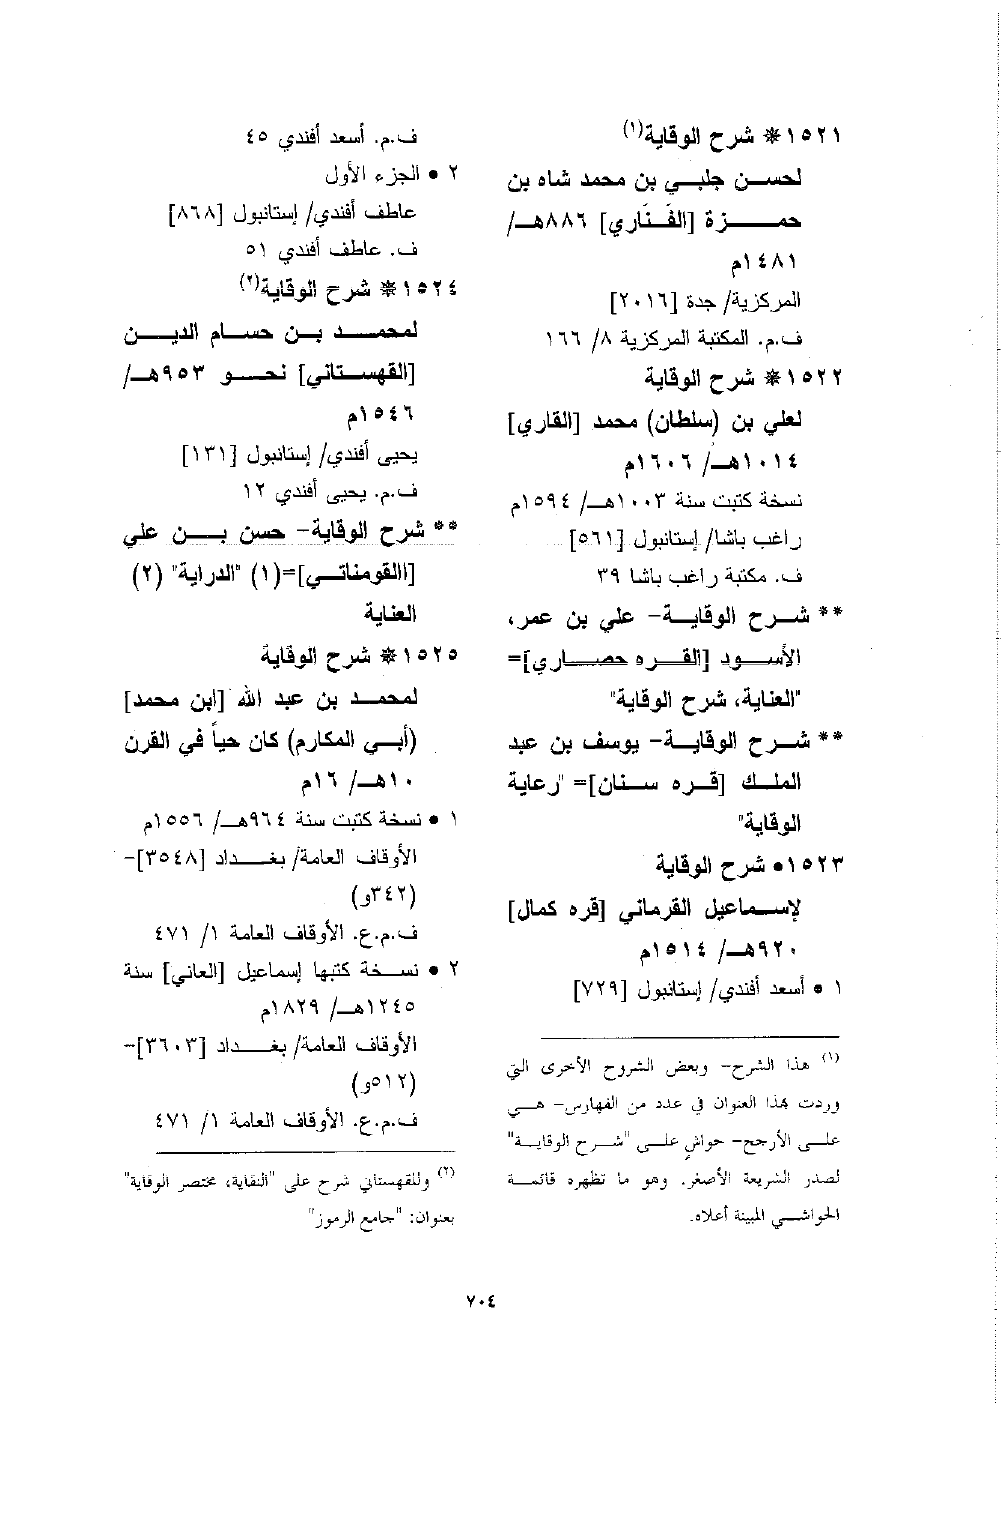 ١٥٢١* شرح الوقاية(١)
لحسن جلبي بن محمد شاه بن
حمزة [الفَنَاري] ٨٨٦هـ/
١٤٨١م
المركزية/ جدة [٢٠١٦]
ف.م. المكتبة المركزية ٨/ ١٦٦
١٥٢٢* شرح الوقاية
لعلي بن (سلطان) محمد [القاري]
١٠١٤هـ/ ١٦٠٦م
نسخة كتبت سنة ١٠٠٣هـ/ ١٥٩٤م
راغب باشا/ إستانبول [٥٦١]
ف. مكتبة راغب باشا ٣٩
** شرح الوقاية- علي بن عمر،
الأسود [القره حصاري]=
"العناية، شرح الوقاية"
** شرح الوقاية- يوسف بن عبد
الملك [قره سنان]= "رعاية
الوقاية"
١٥٢٣• شرح الوقاية
لإسماعيل القرماني [قره كمال]
٩٢٠هـ/ ١٥١٤م
١ • أسعد أفندي/ إستانبول [٧٢٩]
(١) هذا الشرح- وبعض الشروح الأخرى التي
وردت بهذا العنوان في عدد من الفهارس- هي
على الأرجح- حواشٍ على "شرح الوقاية"
لصدر الشريعة الأصغر. وهو ما تظهره قائمة
الحواشي المبينة أعلاه.
ف.م. أسعد أفندي ٤٥
٢ • الجزء الأول
عاطف أفندي/ إستانبول [٨٦٨]
ف. عاطف أفندي ٥١
١٥٢٤* شرح الوقاية(٢)
لمحمد بن حسام الدين
[القهستاني] نحو ٩٥٣هـ/
١٥٤٦م
يحيى أفندي/ إستانبول [١٣١]
ف.م. يحيى أفندي ١٢
** شرح الوقاية- حسن بن علي
[االقومناتي]=(١) "الدراية" (٢)
العناية
١٥٢٥* شرح الوقاية
لمحمد بن عبد الله [ابن محمد]
(أبي المكارم) كان حياً في القرن
١٠هـ/ ١٦م
١ • نسخة كتبت سنة ٩٦٤هـ/ ١٥٥٦م
الأوقاف العامة/ بغداد [٣٥٤٨]-
(٣٤٢و)
ف.م.ع. الأوقاف العامة ١/ ٤٧١
٢ • نسخة كتبها إسماعيل [العاني] سنة
١٢٤٥هـ/ ١٨٢٩م
الأوقاف العامة/ بغداد [٣٦٠٣]-
(٥١٢و)
ف.م.ع. الأوقاف العامة ١/ ٤٧١
(٢) وللقهستاني شرح على "النقاية، مختصر الوقاية"
بعنوان: "جامع الرموز"
٧٠٤